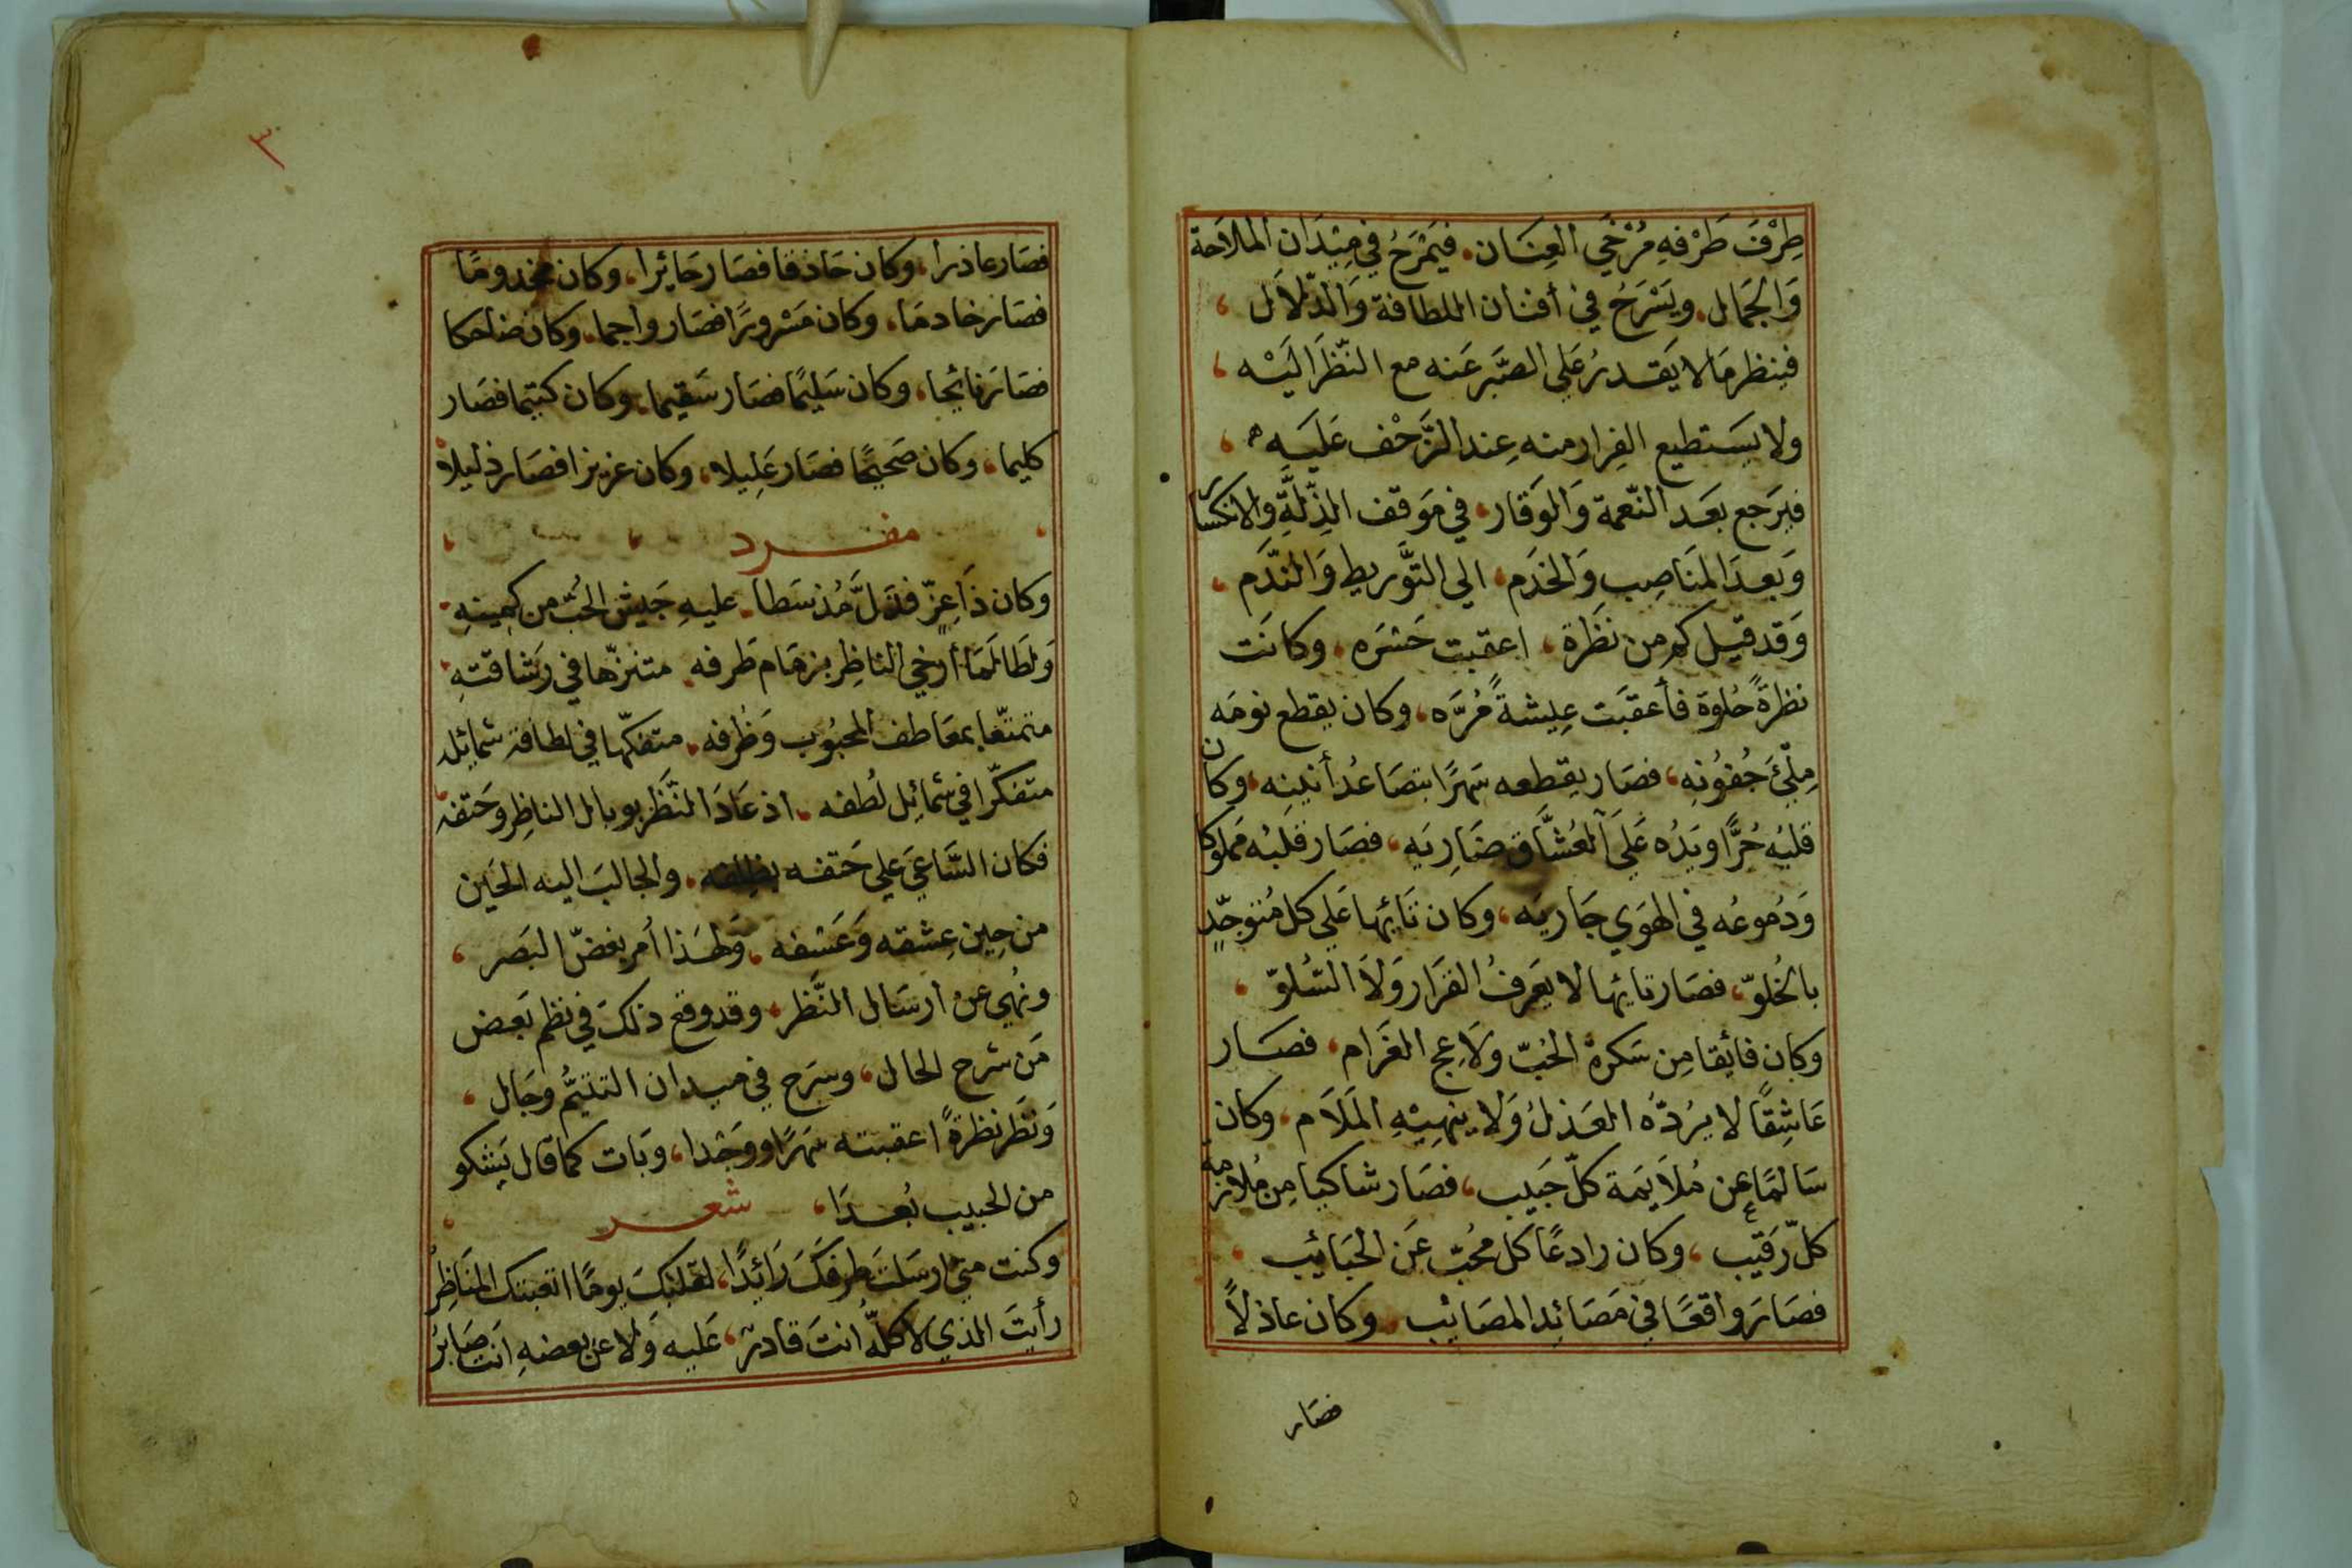 طِرْفَ طَرْفهِ مُرْخَي العِنَان. فيَمْرَحُ في مِيْدَان الملاَحة
وَالجَمَال. ويَسْرَحُ في أفنان اللطافة وَالدّلاَل ،
فينظر مَا لا يَقدرُ عَلي الصَّبر عَنه مع النّظَر اليَْه ،
ولا يسَتطيع الفِرار منه عِند الزَّحْف عَليَه ،
فيرَجع بعَد النّعمة وَالوَقار، في مَوَقف الذِّلَّةِ والانكسار
وَبعدَ المنَاصِب وَالخَدَم، الي التَّوريط وَالندَم ،
وَقد قيل كم من نَظَرة، اعقبت حَسْرَه، وكانَت
نظرةً حُلوة فأعقبَت عِيشةً مُرَّه، وكان يقطع نومَه
مِلْئَ جُفوُنه، فصَار يقطعه سَهرًا بتصَاعُد أنينه، وكان
قلبُه حُرًّا ويَدُه عَلَي العُشَّاق ضَارِيَه، فصَار قلبُه مملوكا
وَدُموعُه في الهوَي جَاريَه، وكان تَائِها عَلي كل مُتوجّدٍ
بالخُلوّ، فصَار تايها لا يعَرفُ القَرَار وَلاَ التسُلوّ ،
وكان فائقا مِن سَكرة الحُبّ ولاَعِج الغَرَام، فصَار
عَاشِقًا لا يَرُدّه العَذلُ وَلا ينهِيْهِ المَلاَم، وكان
سَالمًا عن مُلاَيمَة كلّ حَبيب، فصَار شاكيا مِن مُلازمة
كلّ رَقيب، وكان رادعًا كل محُبّ عَن الحَبَائب ،
فصَارَ واقعًا في مَصَائِد المصَائب. وكان عاذلاً
فصَار
٣
فصَار عاذرا، وكان حَاذقا فصَار حَائرا، وكان مخدومًا
فصَار خادمًا، وكان مَسْرورًا فصَار واجما، وكان ضاحكا
فصَارَ نائحا، وكان سَليمًا فصَار سَقيما، وكان كتيما فصَار
كليما، وكان صَحيحًا فصَار عَلِيلا، وكان عزيزا فصَار ذليلا
مفرد
وكان ذَا عِزّ فذَلَّ مُذ سَطا. عليهِ جَيش الحُبّ من كمِينهِ
وَلطَالمَا أرخي الناظِر بزمَام طَرفه. متنزّها في رَشاقتهِ
متمتعًّا بمعَاطف المحبُوب وَظُرفه. متفكّها في لطافة شمائله
متفكّرا في شمائِل لُطفه. اذ عَادَ النَّظَر بوبال الناظِر وحَتفه
فكان السَّاعَي علي حَتفه بظلفه. والجالبَ اليه الحَين
من حِين عِشقه وَعَسْفه. وَلهذا أمر بغضّ البَصر ،
ونُهي عن ارسَال النَّظر، وقد وقع ذلكَ في نظم بَعض
مَن شرح الحال، وسَرَح في ميدان التتيُّم وجَال ،
وَنظَر نظرةً اعقبته سَهرًا ووجْدا، وبَات كما قال يَشكو
من الحبيب بُعدَا، شعر
وكنت متي ارسَلتَ طرفكَ رَائِدًا، لقلبكَ يومًا اتعبتك المنَاظِرُ
رأيتَ الذي لا كلّه انتَ قادرٌ، عَليه وَلا عن بعضهِ انَت صَابرُ